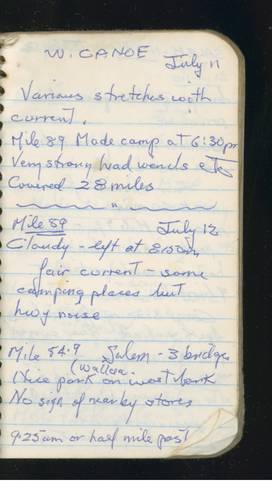 W. CANOE
July 11
Various stretches with
current.
Mile 89 Made camp at 6:30pm
Very strong head winds etc
Covered 28 miles
Mile 89 July 12
Cloudy - left at 8:00am
fair current - some
camping places but
hwy noise
Mile 84.9 Salem - 3 bridges
(Wallace
Nice park on west bank
No sign of nearby stores
9:25am or half mile past